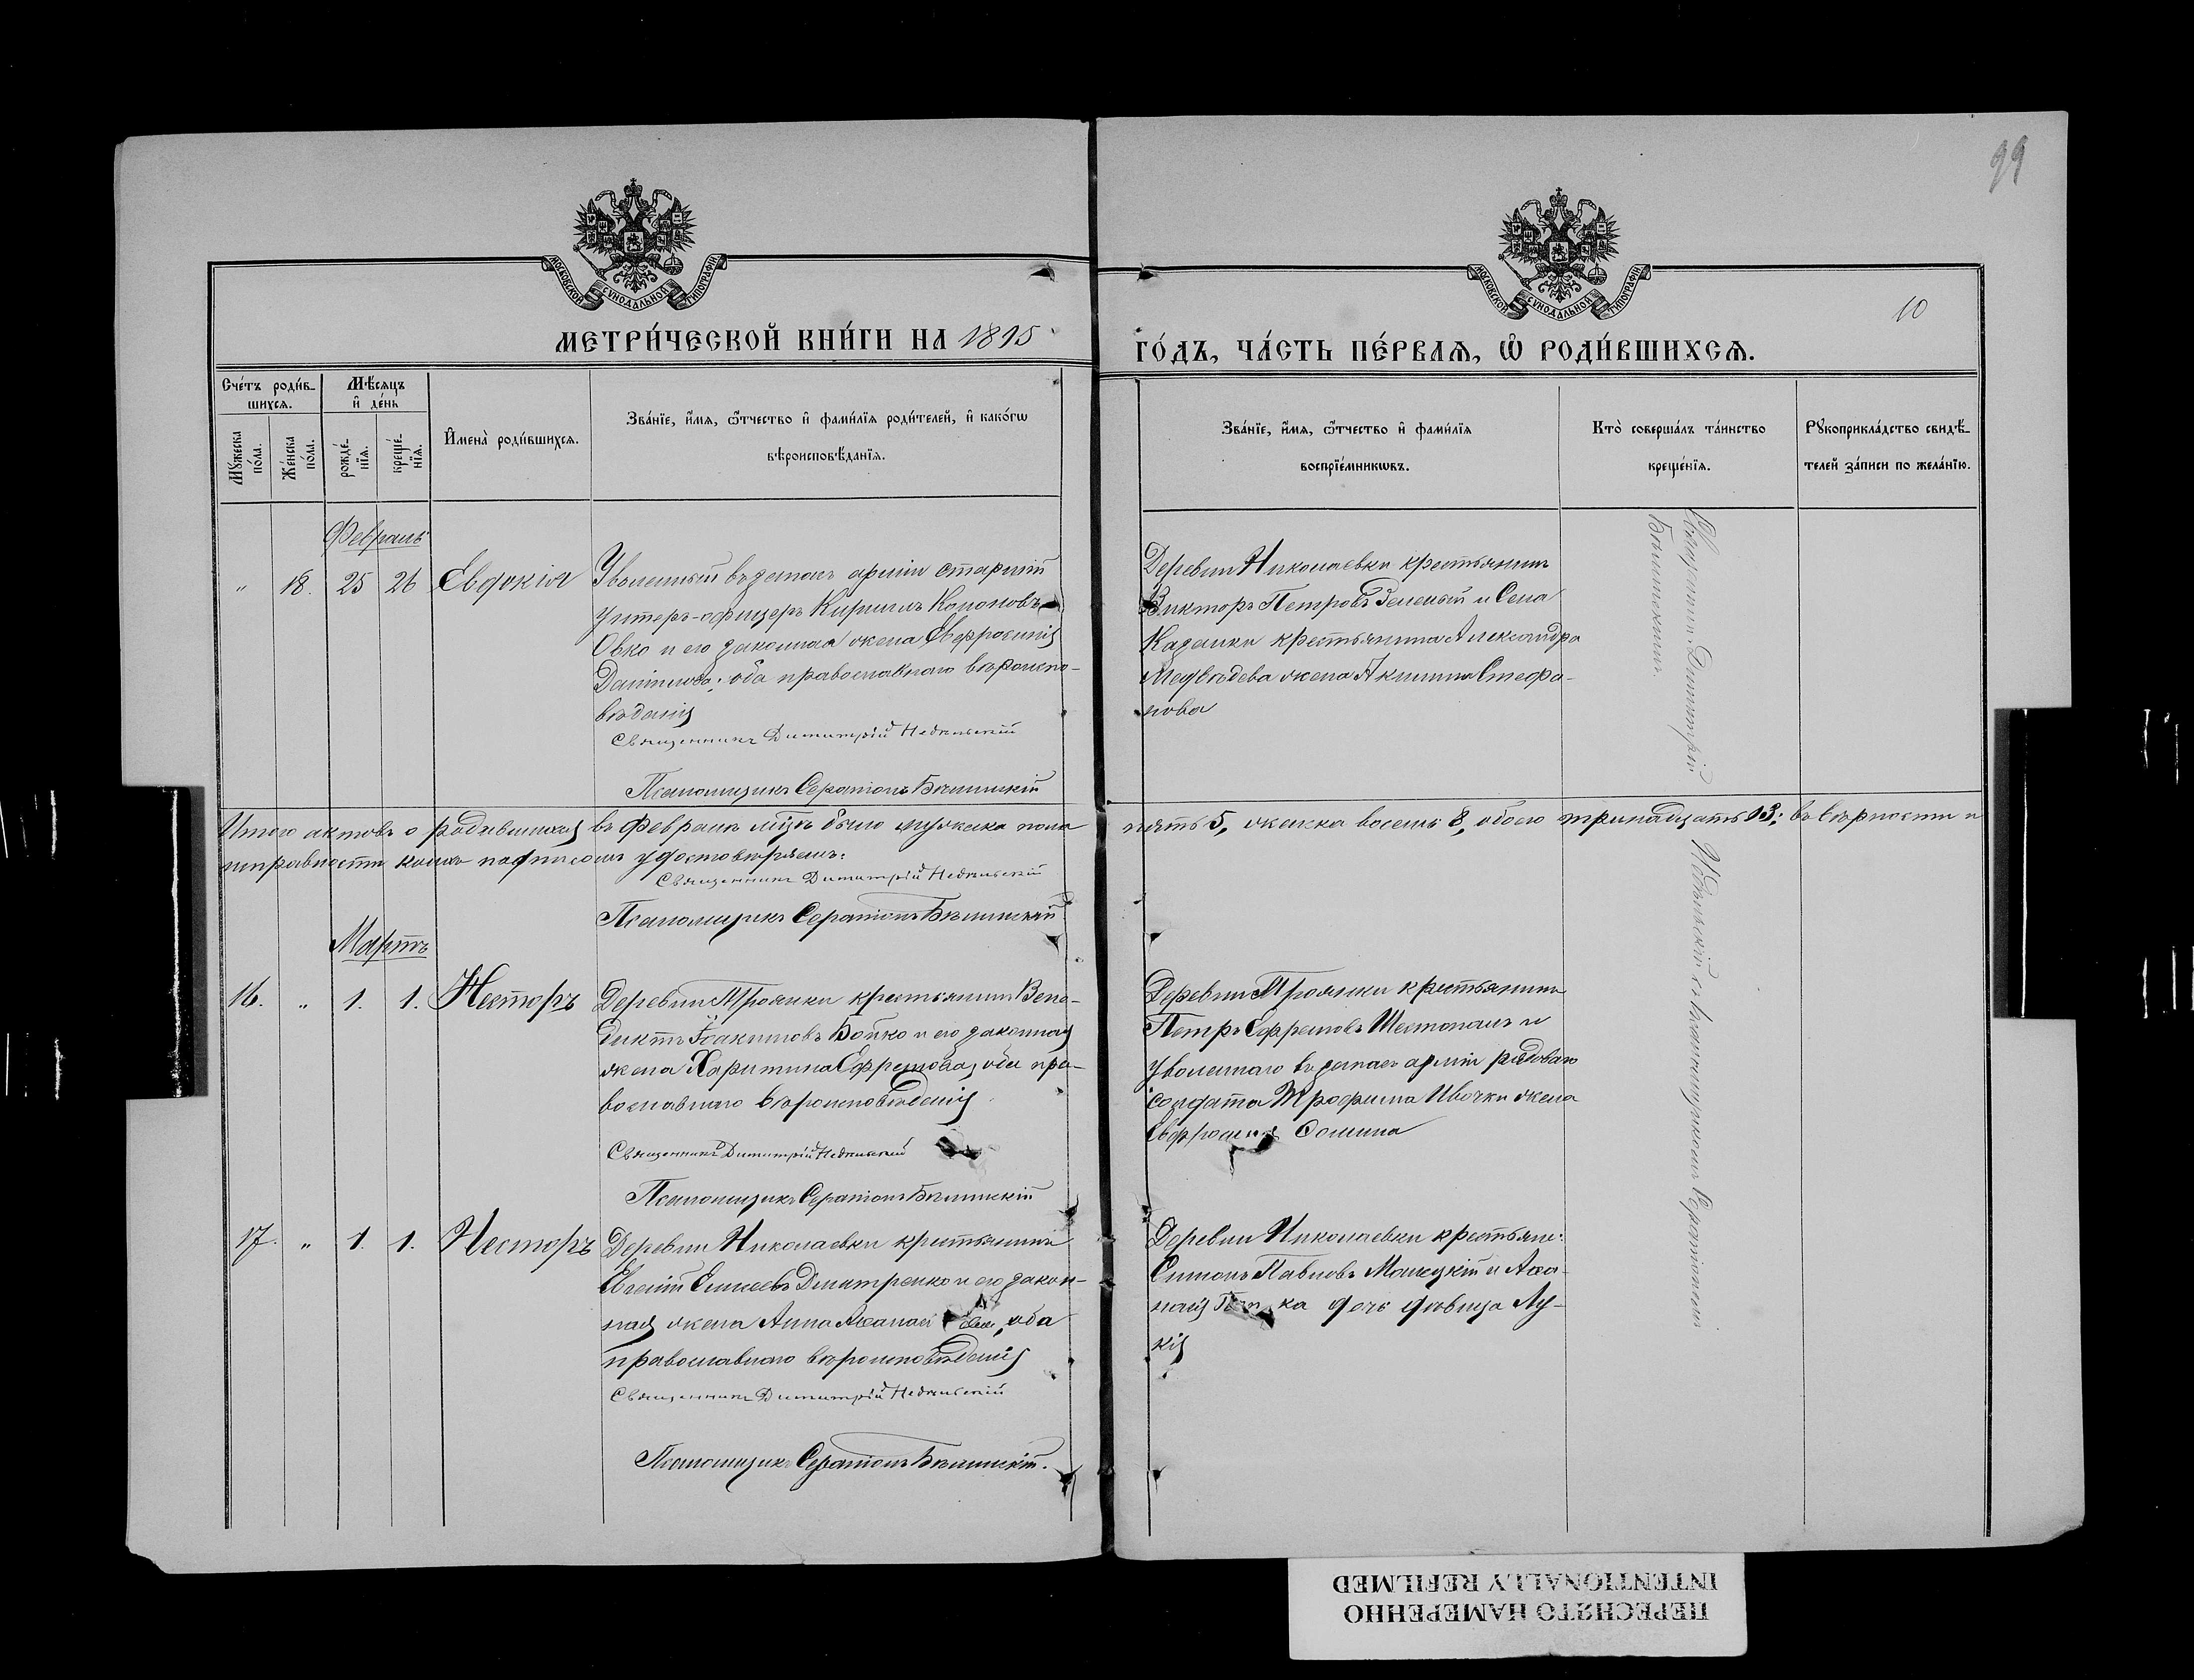 99
МОСКОВСКОЙ СУНОДАЛЬНОЙ ТИПОГРАФІИ
МОСКОВСКОЙ СУНОДАЛЬНОЙ ТИПОГРАФІИ
10
МЕТРИ́ЧЕСКОЙ КНИ́ГИ НА 1895
ГО́ДЪ, ЧА́СТЬ ПЕ́РВАѦ, Ѡ҆ РОДИ́ВШИХСѦ.
Сче́тъ роди́в-
шихсѧ.
Мѣ́сѧцъ
и҆ де́нь
Мꙋ́жеска
по́ла.
Же́нска
по́ла.
рожде́-
нїѧ.
креще́-
нїѧ.
И҆мена̀ роди́вшихсѧ.
Зва́нїе, и҆́мѧ, ѻ҆́тчество и҆ фами́лїѧ роди́телей, и҆ како́гѡ
вѣроисповѣ́данїѧ.
Зва́нїе, и҆́мѧ, ѻ҆́тчество и҆ фами́лїѧ
воспрїе́мникѡвъ.
Кто̀ соверша́лъ та́инство
креще́нїѧ.
Рꙋкоприкла́дство свидѣ́-
телей за́писи по жела́нїю.
Февраль
" 18. 25 26 Евдокія
Уволенный въ запасъ арміи старшій
унтеръ-офицеръ Кириллъ Кононовъ
Овко и его законная жена Евфросинія
Даніилова; оба православнаго вѣроиспо-
вѣданія
Священникъ Димитрій Недѣльскій
Псаломщикъ Серапіонъ Бѣлинскій
Деревни Николаевки крестьянинъ
Викторъ Петровъ Зеленый и Села
Казанки крестьянина Александра
Медвѣдева жена Акилина Стефа-
нова
Священникъ Димитрій
Бѣлинскимъ.
Итого актовъ о родившихся въ Февралѣ м-цѣ было мужеска пола пять 5, женска восемь 8, обоего тринадцать 13; въ вѣрности и
исправности коихъ подписомъ удостовѣряемъ:
Священникъ Димитрій Недѣльскій
Псаломщикъ Серапіонъ Бѣлинскій
Мартъ
16. " 1. 1. Несторъ
Деревни Троянки крестьянинъ Вене-
диктъ Іоакимовъ Бойко и его законная
жена Харитина Ефремова, оба пра-
вославнаго вѣроисповѣданія
Священникъ Димитрій Недѣльскій
Псаломщикъ Серапіонъ Бѣлинскій
Деревни Троянки крестьянинъ
Петръ Ефремовъ Шестопалъ и
уволеннаго въ запасъ арміи рядоваго
солдата Трофима Ивочки жена
Евфросинія Фомина
Недѣльскій съ псаломщикомъ Серапіономъ
17. " 1. 1. Несторъ
Деревни Николаевки крестьянинъ
Евгеній Елисеевъ Дмитренко и его закон-
ная жена Анна оба
православнаго вѣроисповѣданія
Священникъ Димитрій Недѣльскій
Псаломщикъ Серапіонъ Бѣлинскій.
Деревни Николаевки крестьяне:
Симонъ Павловъ Малецкій и Аѳа-
дочь дѣвица Лу-
кія
ПЕРЕСНЯТО НАМЕРЕННО
INTENTIONALLY REFILMED